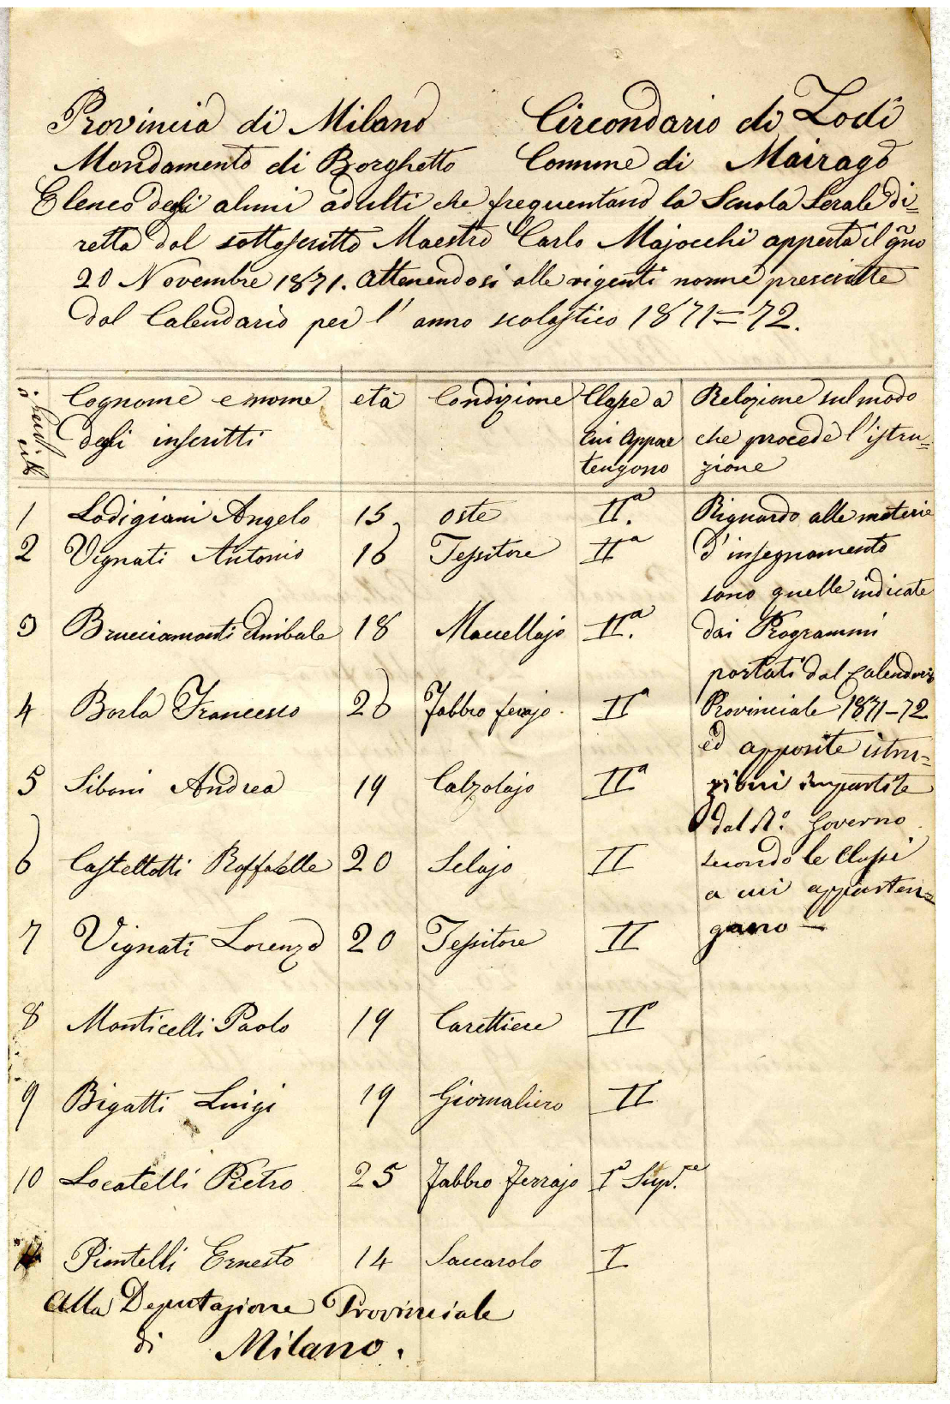 Provincia di Milano Circondario di Lodi
Mandamento di Borghetto Comune di Mairago
Elenco degli aluni adulti che frequentano la Scuola Serale di=
retta dal sottoscritto Maestro Carlo Majocchi apperta il gno
20 Novembre 1871. Attenendosi alle vigenti norme prescritte
dal Calendario per l' anno scolastico 1871=72.
Cognome e nome età Condizione Classe a Relazione sul modo
degli inscritti cui appar che procede l'istru=
tengono zione
1 Lodigiani Angelo 15 oste IIa. Riguardo alle materie
2 Vignati Antonio 16 Tessitore IIa d'insegnamento
sono quelle indicate
3 Brucciamonti Anibale 18 Macellajo IIa. dai Programmi
portati dal Calendario
4 Borla Francesco 26 Fabbro ferajo. IIa Provinciale 1871-72
ed apposite istru=
5 Siboni Andrea 19 Calzolajo IIa zioni impartite
dal R.o Governo
6 Castellotti Raffaelle 20 Selajo II secondo le Classi
a cui apparten=
7 Vignati Lorenzo 20 Tessitore II gano —
8 Monticelli Paolo 19 Carettiere IIa
9 Bigatti Luigi 19 Giornaliero II
10 Locatelli Pietro 25 Fabbro Ferrajo Ia Sup.re
11 Piontelli Ernesto 14 Saccarolo I
Alla Deputazione Provinciale
di Milano.